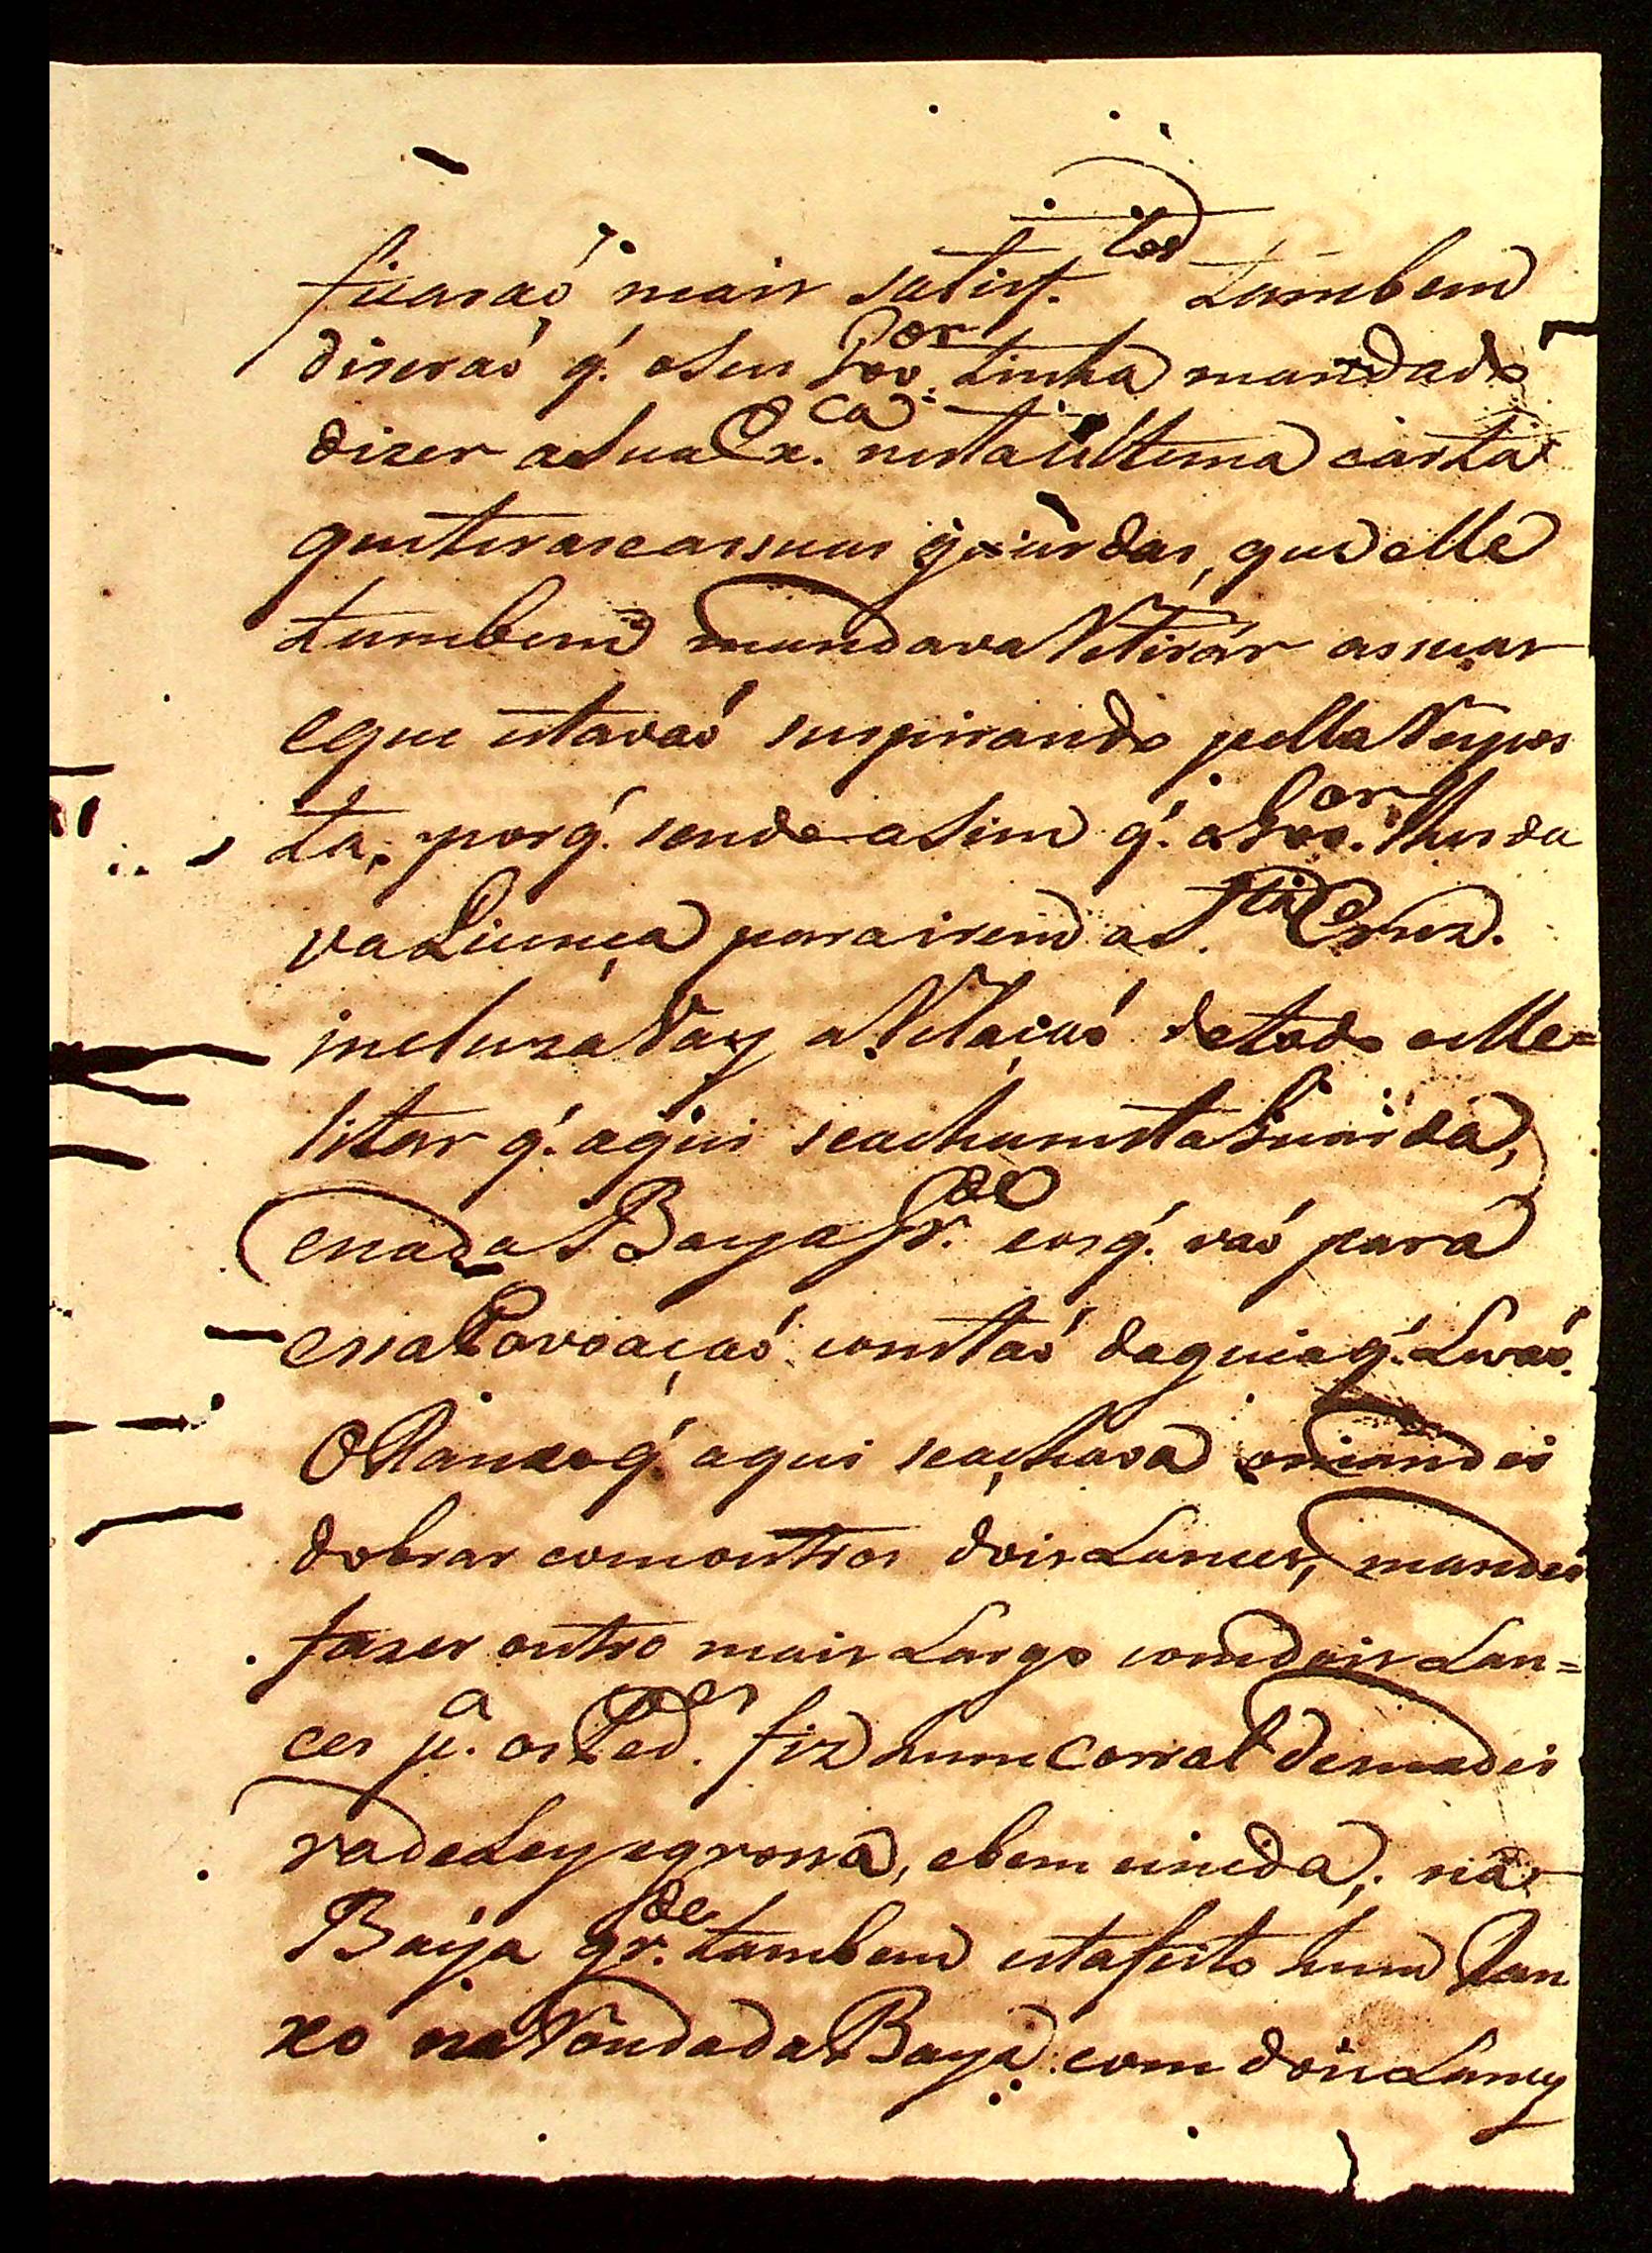 ficaraó mais satisf.tos tambem
diseraó q̃. o seu Gov.or tinha mandado
dizer a Sua Ex.ca nesta ultima carta
que tirase as suas goardas, que elle
tambem mandava Retirár as suas
e que estavaó suspirando pella Respos
ta, porq̃. sendo asim q̃. o Gov.or lhes da
va Licença para irem a S.ta Cruz.
incluza vay a Relaçaó de todo o Me=
litar q̃. aqui se acha nesta Guarda,
e na da Baya Gr.de e os q̃. vaó para
essa Povoaçaó constaó da guia q̃. Levaó.
O Ranxo q̃ aqui se achava o mandei
dobrar com outros dois Lances, mandei
fazer outro mais Largo com dois Lan=
ces p.a os Ped.es fiz hum Corral de madei
ra de Ley e grossa, e bem unida; na
Baija gr.de tambem esta feito hum Ran
xo na Ronda da Baya com dois Lances